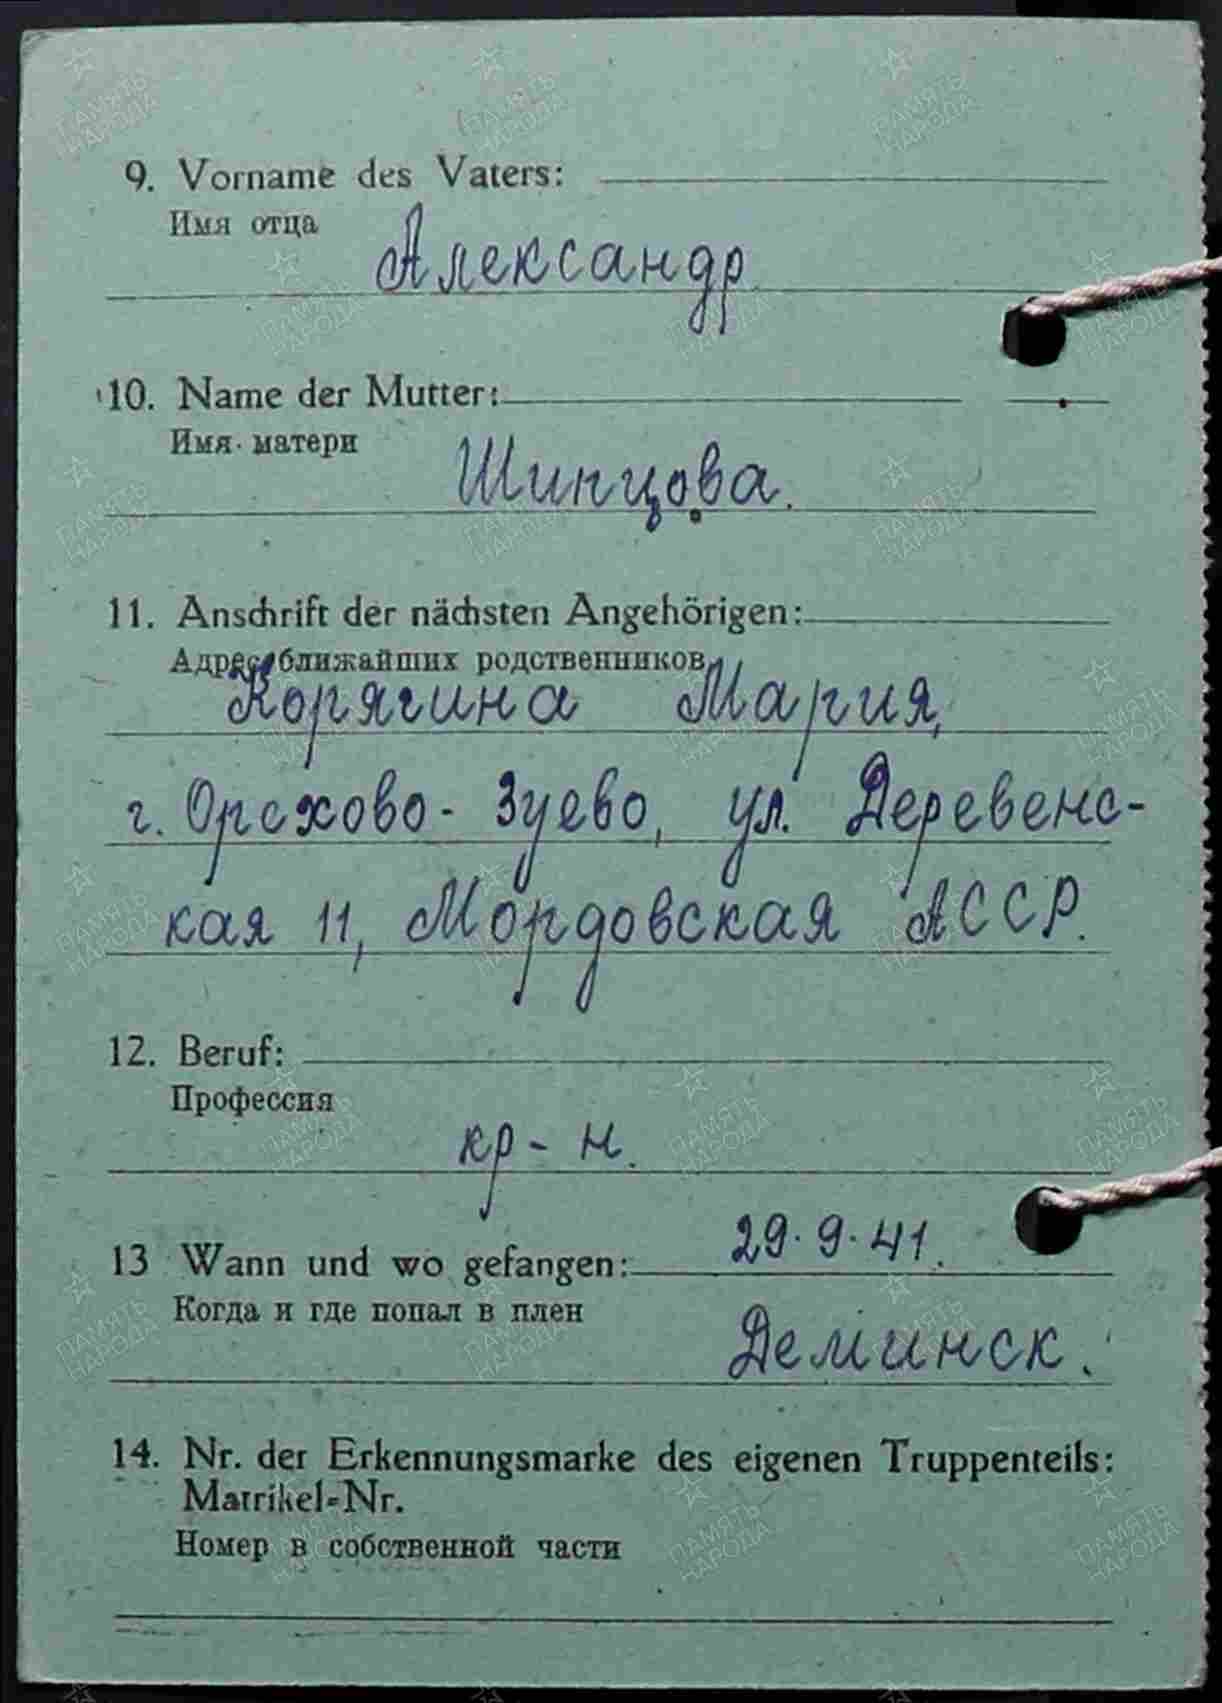 9. Vorname des Vaters:
Имя отца
Александр
10. Name der Mutter:
Имя матери
Шинцова.
11. Anschrift der nächsten Angehörigen:
Адрес ближайших родственников
Корягина Мария,
г. Орехово-Зуево, ул. Деревенс-
кая 11, Мордовская АССР.
12. Beruf:
Профессия
кр-н.
13 Wann und wo gefangen: 29.9.41.
Когда и где попал в плен
Деминск.
14. Nr. der Erkennungsmarke des eigenen Truppenteils:
Matrikel-Nr.
Номер в собственной части
ПАМЯТЬ НАРОДА